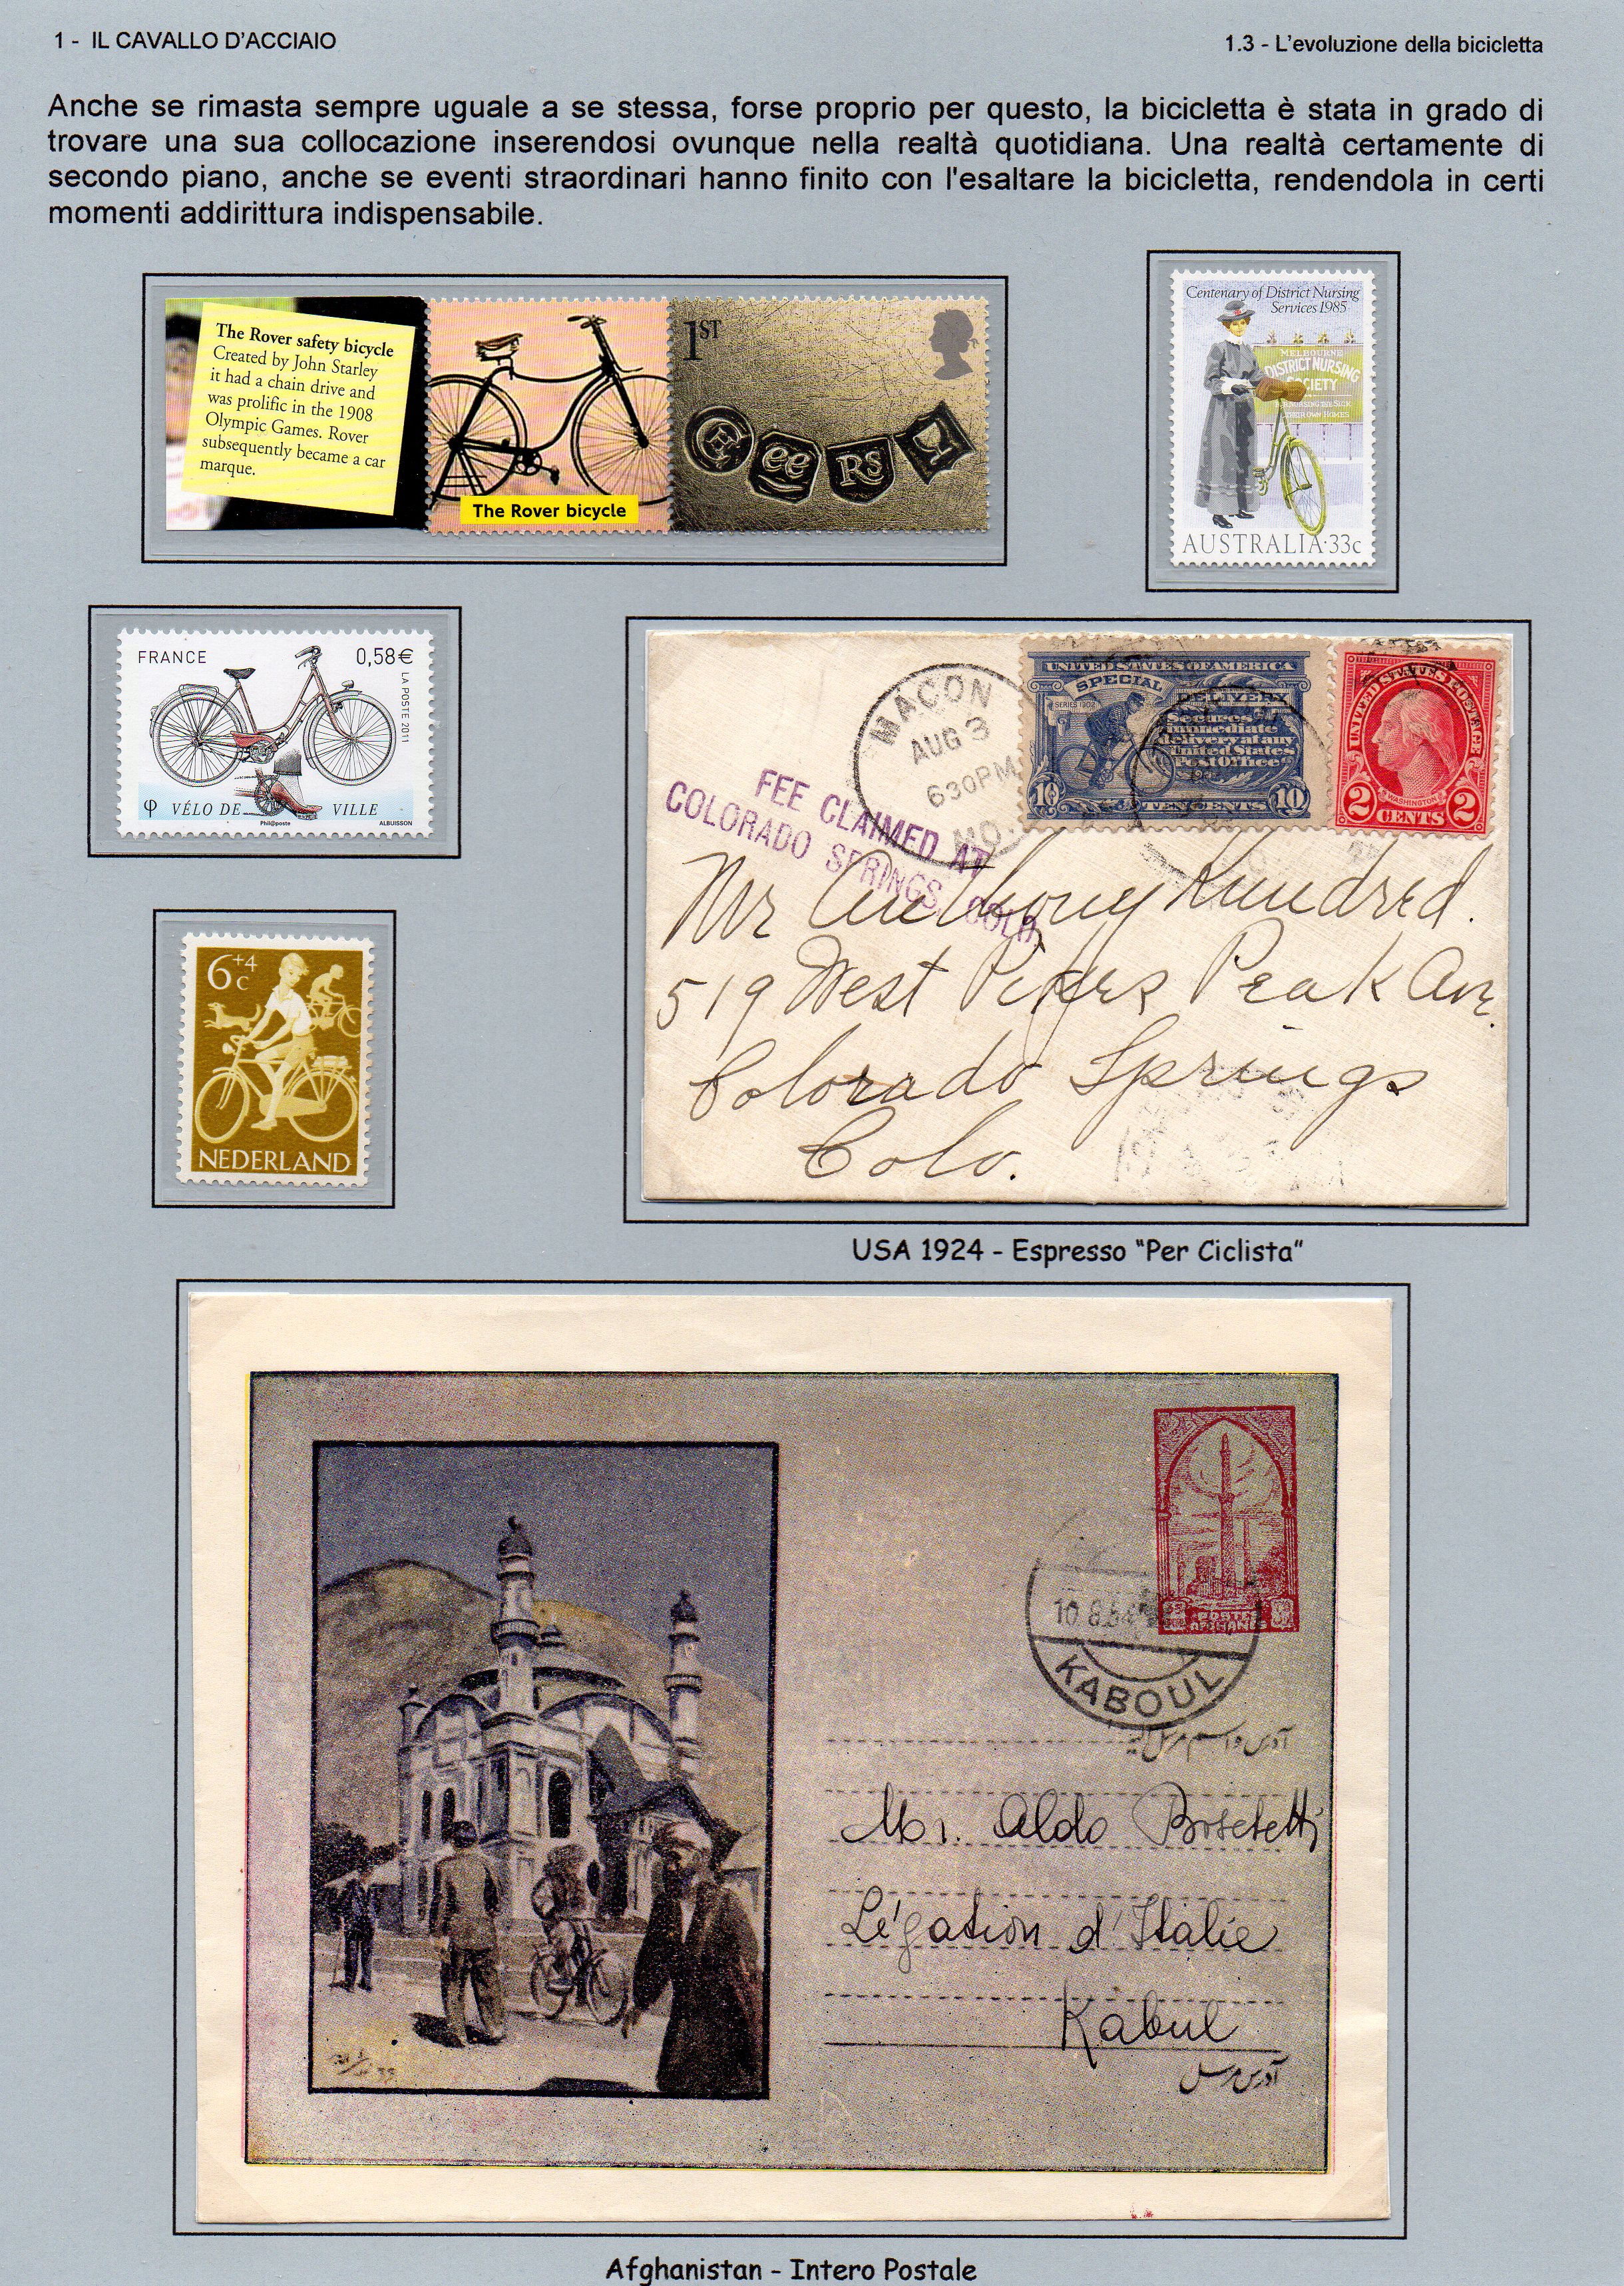 1 - IL CAVALLO D'ACCIAIO
1.3 - L'evoluzione della bicicletta
Anche se rimasta sempre uguale a se stessa, forse proprio per questo, la bicicletta è stata in grado di
trovare una sua collocazione inserendosi ovunque nella realtà quotidiana. Una realtà certamente di
secondo piano, anche se eventi straordinari hanno finito con l'esaltare la bicicletta, rendendola in certi
momenti addirittura indispensabile.
The Rover safety bicycle
Created by John Starley
it had a chain drive and
was prolific in the 1908
Olympic Games. Rover
subsequently became a car
marque.
The Rover bicycle
1ST
Centenary of District Nursing
Services 1985
MELBOURNE
DISTRICT NURSING
SOCIETY
AUSTRALIA·33c
FRANCE
0,58€
LA POSTE 2011
VÉLO DE VILLE
Phil@poste
ALBUISSON
MACON
AUG 3
630PM
MO.
FEE CLAIMED AT
COLORADO SPRINGS, COLO.
UNITED STATES OF AMERICA
SPECIAL
DELIVERY
SERIES 1902
Secures
immediate
delivery at any
United States
Post Office
10 TEN CENTS 10
UNITED STATES POSTAGE
WASHINGTON
2 CENTS 2
Mr Anthony Kundred.
519 West Pikes Peak Ave.
Colorado Springs
Colo.
6+4
c
NEDERLAND
USA 1924 - Espresso "Per Ciclista"
POSTES
AFGHANES
10.8.54
KABOUL
Mr. Aldo Boschetti
Légation d'Italie
Kabul
آدرس مرسل
Afghanistan - Intero Postale